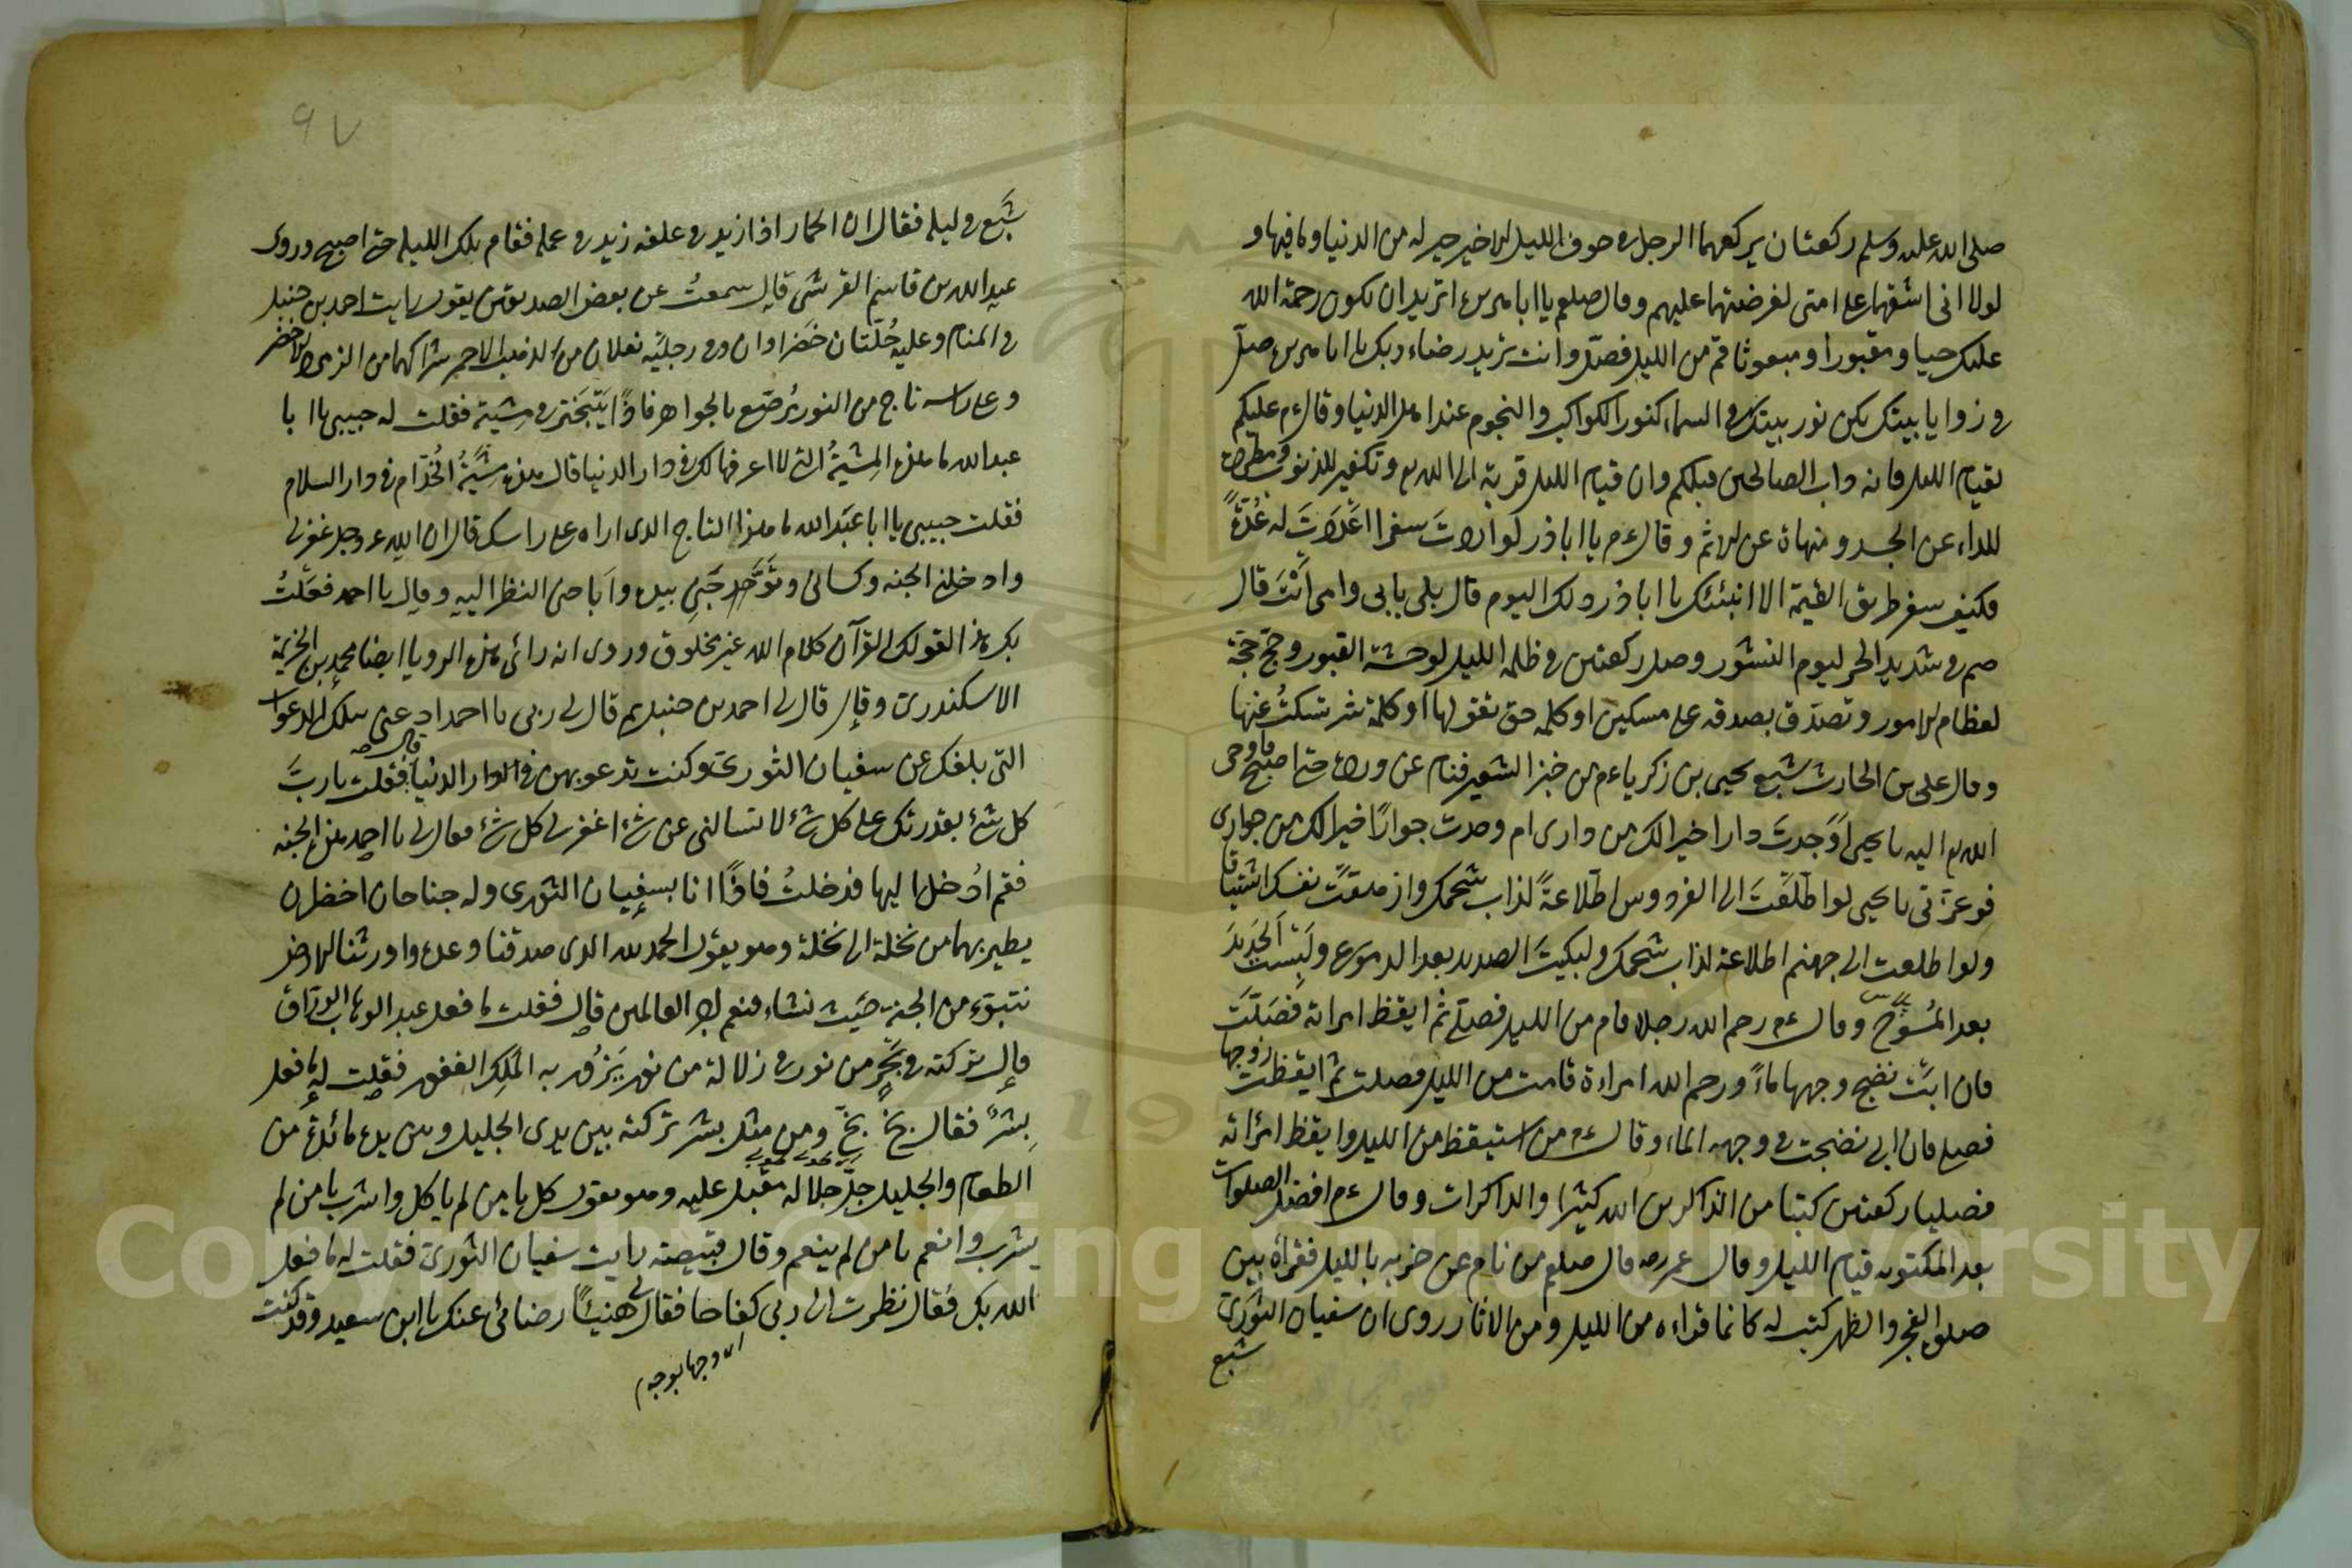 صلى الله عليه وسلم ركعتان يركعهما الرجل في جوف الليل الاخير خير له من الدنيا وما فيها و
لولا انى اشقهما على امتى لفرضتهما عليهم وقال صلعم يا ابا هريرة اتريد ان تكون رحمة الله
عليك حيا ومقبورا ومبعوثا قم من الليل فصل وانت تريد رضاء ربك يا ابا هريرة صل
في زوايا بيتك يكن نور بيتك في السماء كنور الكواكب والنجوم عند اهل الدنيا وقال ءم عليكم
بقيام الليل فانه داب الصالحين قبلكم وان قيام الليل قربة الى الله تع وتكفير للذنوب ومطردة
للداء عن الجسد ومنهاة عن الاثم وقال ءم يا ابا ذر لو اردت سفرا اعددت له عُدّةً
فكيف سفر طريق القيمة الا انبئك يا ابا ذر ذلك اليوم قال بلى بابى وامى انت قال
صم في شديد الحر ليوم النشور وصل ركعتين في ظلمة الليل لوحشة القبور وحج حجة
لعظام الامور وتصدق بصدقه على مسكين او كلمه حق تقولها او كلمة شر تسكتُ عنها
وقال على بن الحارث شبع يحيى بن زكرياء ءم من خبز الشعير فنام عن ورده حتى اصبح فاوحى
الله تع اليه يا يحيى اوَجدتَ دارا خيرا لك من دارى ام وجدت جوارًا خيرا لك من جوارى
فوعزتى يا يحيى لو اطلعتَ الى الفردوس اطلاعةً لذاب شحمك وازهقت نفسك اشتياقا
ولو اطلعت الى جهنم اطلاعة لذاب شحمك ولبكيتَ الصديد بعد الدموع ولبست الحديدَ
بعد المُسوح وقال ءم رحم الله رجلا قام من الليل فصلى ثم ايقظ امراته فصَلّتَ
فان ابَتْ نضح وجهها ماءً ورحم الله امراءة قامت من الليل فصلت ثم ايقظت زوجها
فصلى فان ابى نضحت في وجهه الماء وقال ءم من استيقظ من الليل وايقظ امراته
فصليا ركعتين كتبا من الذاكرين الله كثيرا والذاكرات وقال ءم افضل الصلوات
بعد المكتوبه قيام الليل وقال عمر رضه قال صلعم من نام عن حزبه بالليل فقراه بين
صلوة الفجر والظهر كتب له كانما قراءه من الليل ومن الاثار روى ان سفيان الثورى
شبع
٩٧
شَبع في ليلة فقال ان الحمار اذا زيد في علفه زيد في عمله فقام تلك الليلة حتى اصبح وروى
عبد الله بن قاسم القرشى قال سمعتُ عن بعض الصديقين يقول رايت احمد بن حنبل
في المنام وعليه حُلّتان خضراوان وفي رجليه نعلان من الذهب الاحمر شراكهما من الزمرد الاخضر
وعلى راسه تاج من النور مُرصّع بالجواهر فاذًا يتبختر في مشيته فقلت له حبيبى يا ابا
عبد الله ما هذه المِشيةُ التى لا اعرفها لك في دار الدنيا قال هذه مشيةُ الخُدّام في دار السلام
فقلت حبيبى يا ابا عبَد الله ما هذا التاج الذى اراه على راسك قال ان الله عز وجل غفر لى
وادخلنى الجنه وكسانى وتوّجنى بيده واَباحنى النظر اليه وقال يا احمد فعَلتُ
بك هذا لقولك القرآن كلام الله غير مخلوق وروى انه رائ هذه الرويا ايضا محمد بن الخزيمة
الاسكندرى وقال قال لى احمد بن حنبل ثم قال لى ربى يا احمد ادعنى بتلك الدعوات
التى بلغك عن سفيان الثورى وكنت تدعو بهن في الدار الدنيا قال فقلت يا ربَّ
كل شئ بقدرتك على كل شئ لا تسالنى عن شئ اغفر لى كل شئ فقال لى يا احمد هذه الجنه
فقم ادُخل اليها فدخلتُ فاذًا انا بسفيان الثورى وله جناحان اخضران
يطير بهما من نخلة الى نخلة وهو يقول الحمد لله الذى صدقنا وعده واورثنا الارض
نتبوء من الجنة حَيث نشاء فنعم اجر العالمين قال فقلت ما فعل عبد الوهاب الورّاق
قال تركته في بَحرٍ من نور في زلالة من نور يَزُور به المَلِك الغفور فقلت له ما فعل
بِشرٌ فقال بخٍ بخٍّ ومن مثل بشر تركته بين يدى الجليل وبين يده مائدة من
الطعام والجليل جلّ جلاله مقبل عليه وهو يقول كل يا من لم ياكل واشرب يا من لم
يشرب وانعم يا من لم ينعم وقال قبيصه رايت سفيان الثورى فقلت له ما فعل
الله بك فقال نظرت الى ربى كفاحا فقال لى هنيئًا رضائى عنك يا ابن سعيد وقد كنت
اى وجها بوجه م
Copyright © King Saud University
19